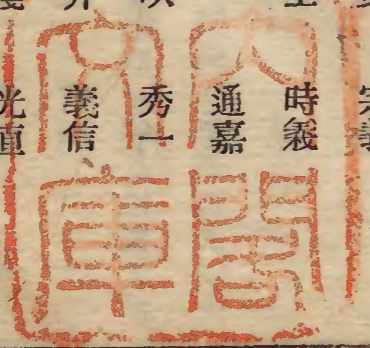 宗義
時義
通嘉
秀一
義信
光直
内閣
文庫